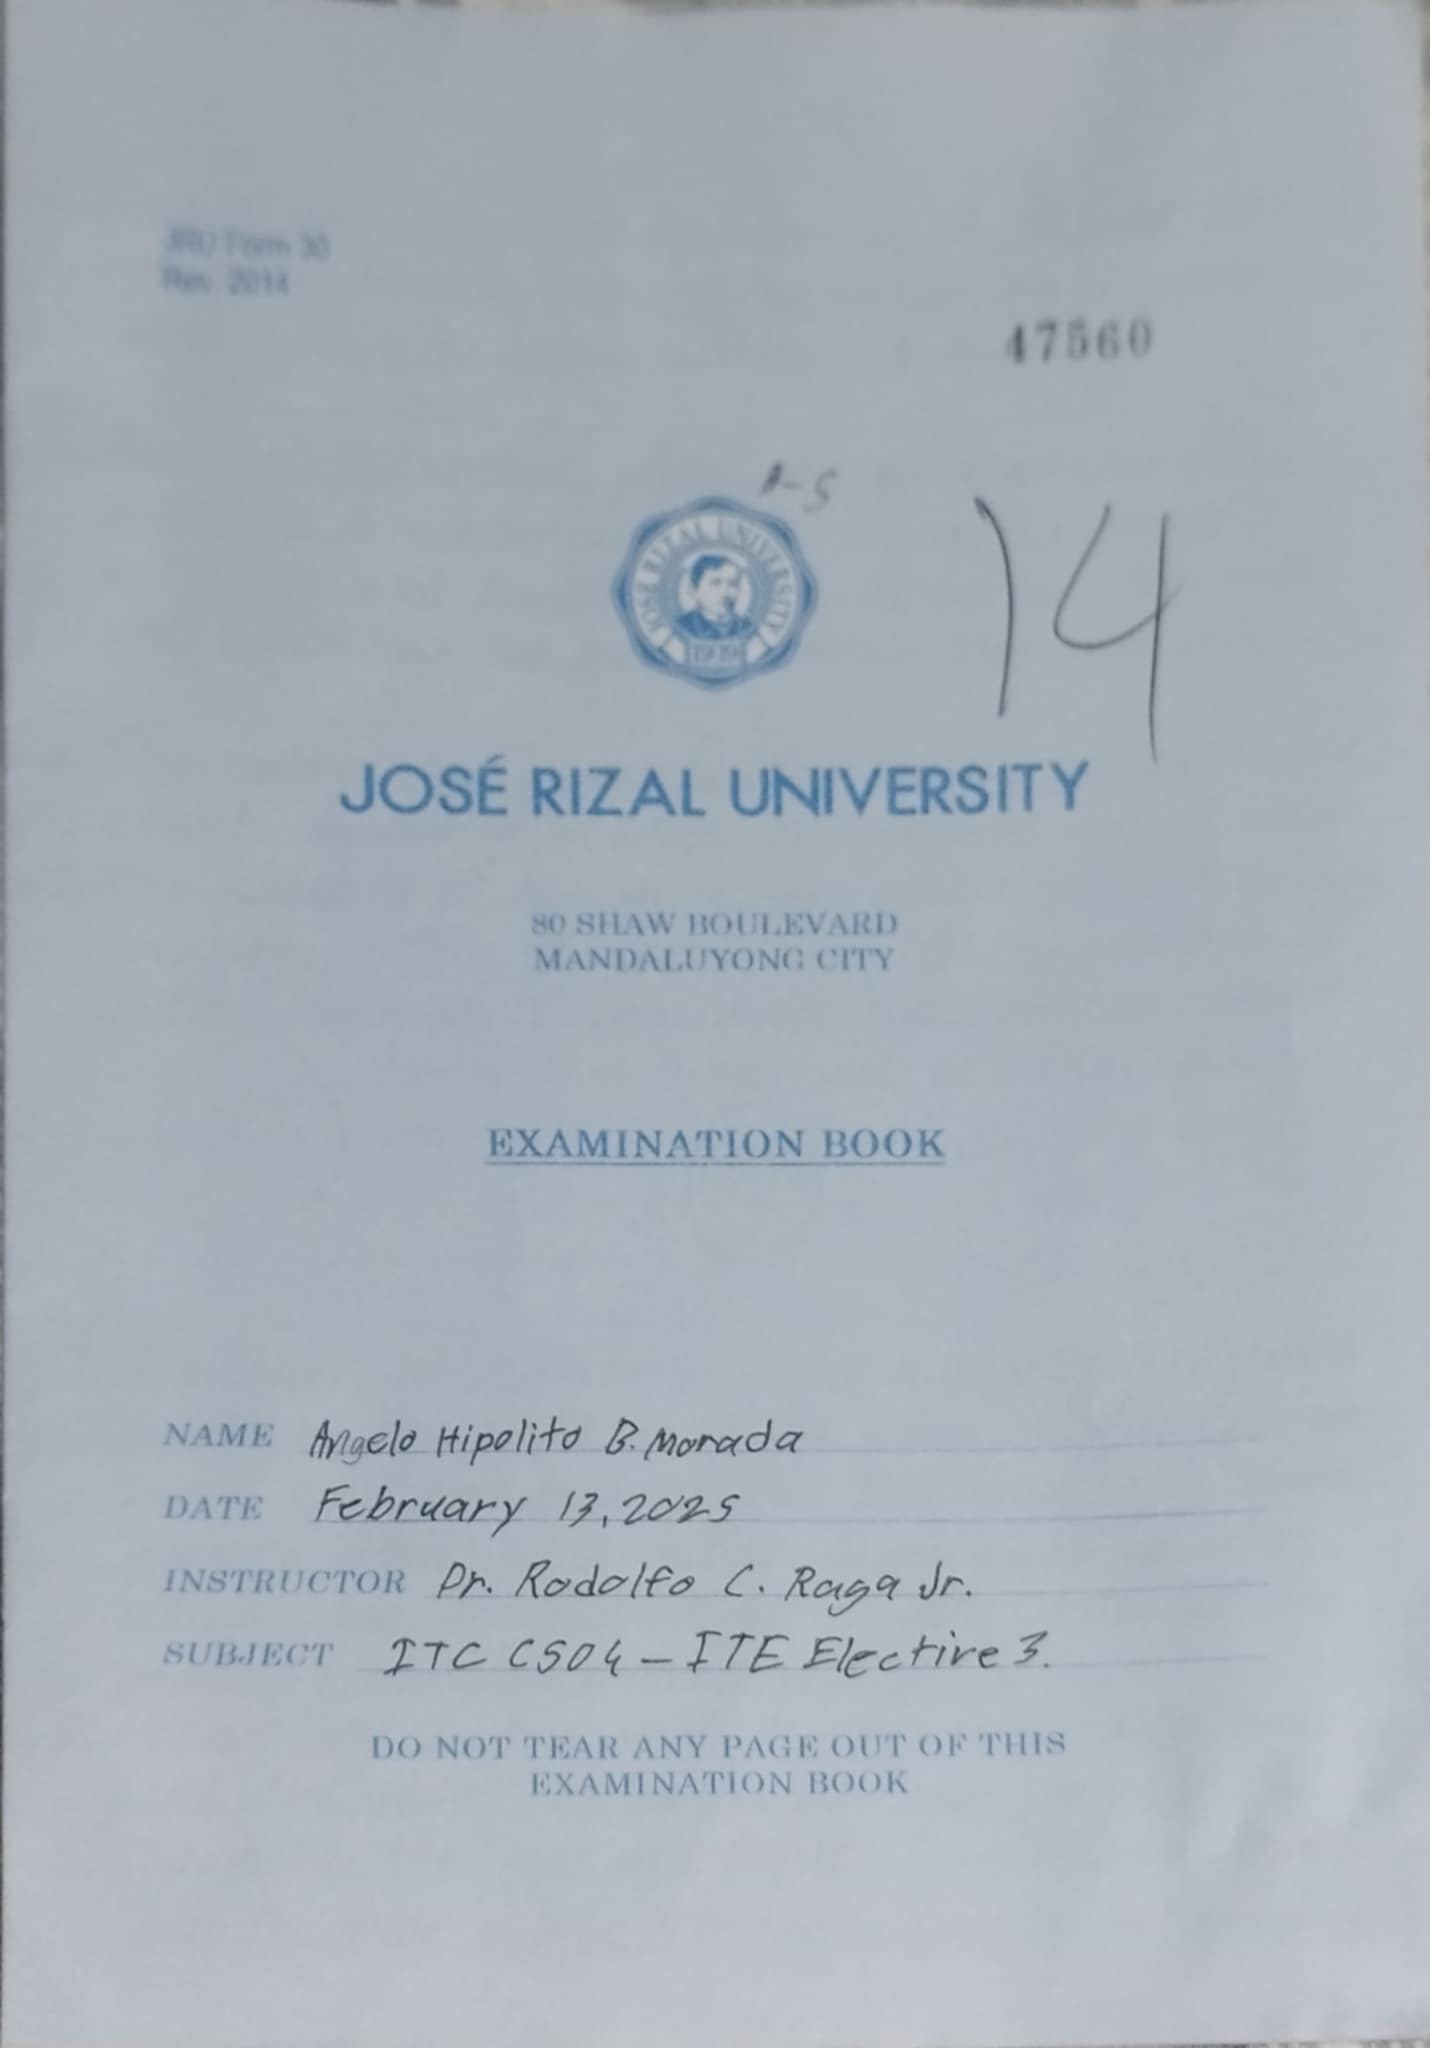 JRU Form 30
Rev. 2014
47560
A-5
14
JOSÉ RIZAL UNIVERSITY
1919
JOSÉ RIZAL UNIVERSITY
80 SHAW BOULEVARD
MANDALUYONG CITY
EXAMINATION BOOK
NAME Angelo Hipolito B. Morada
DATE February 13, 2025
INSTRUCTOR Dr. Rodolfo C. Raga Jr.
SUBJECT ITC C504 - ITE Elective 3.
DO NOT TEAR ANY PAGE OUT OF THIS
EXAMINATION BOOK